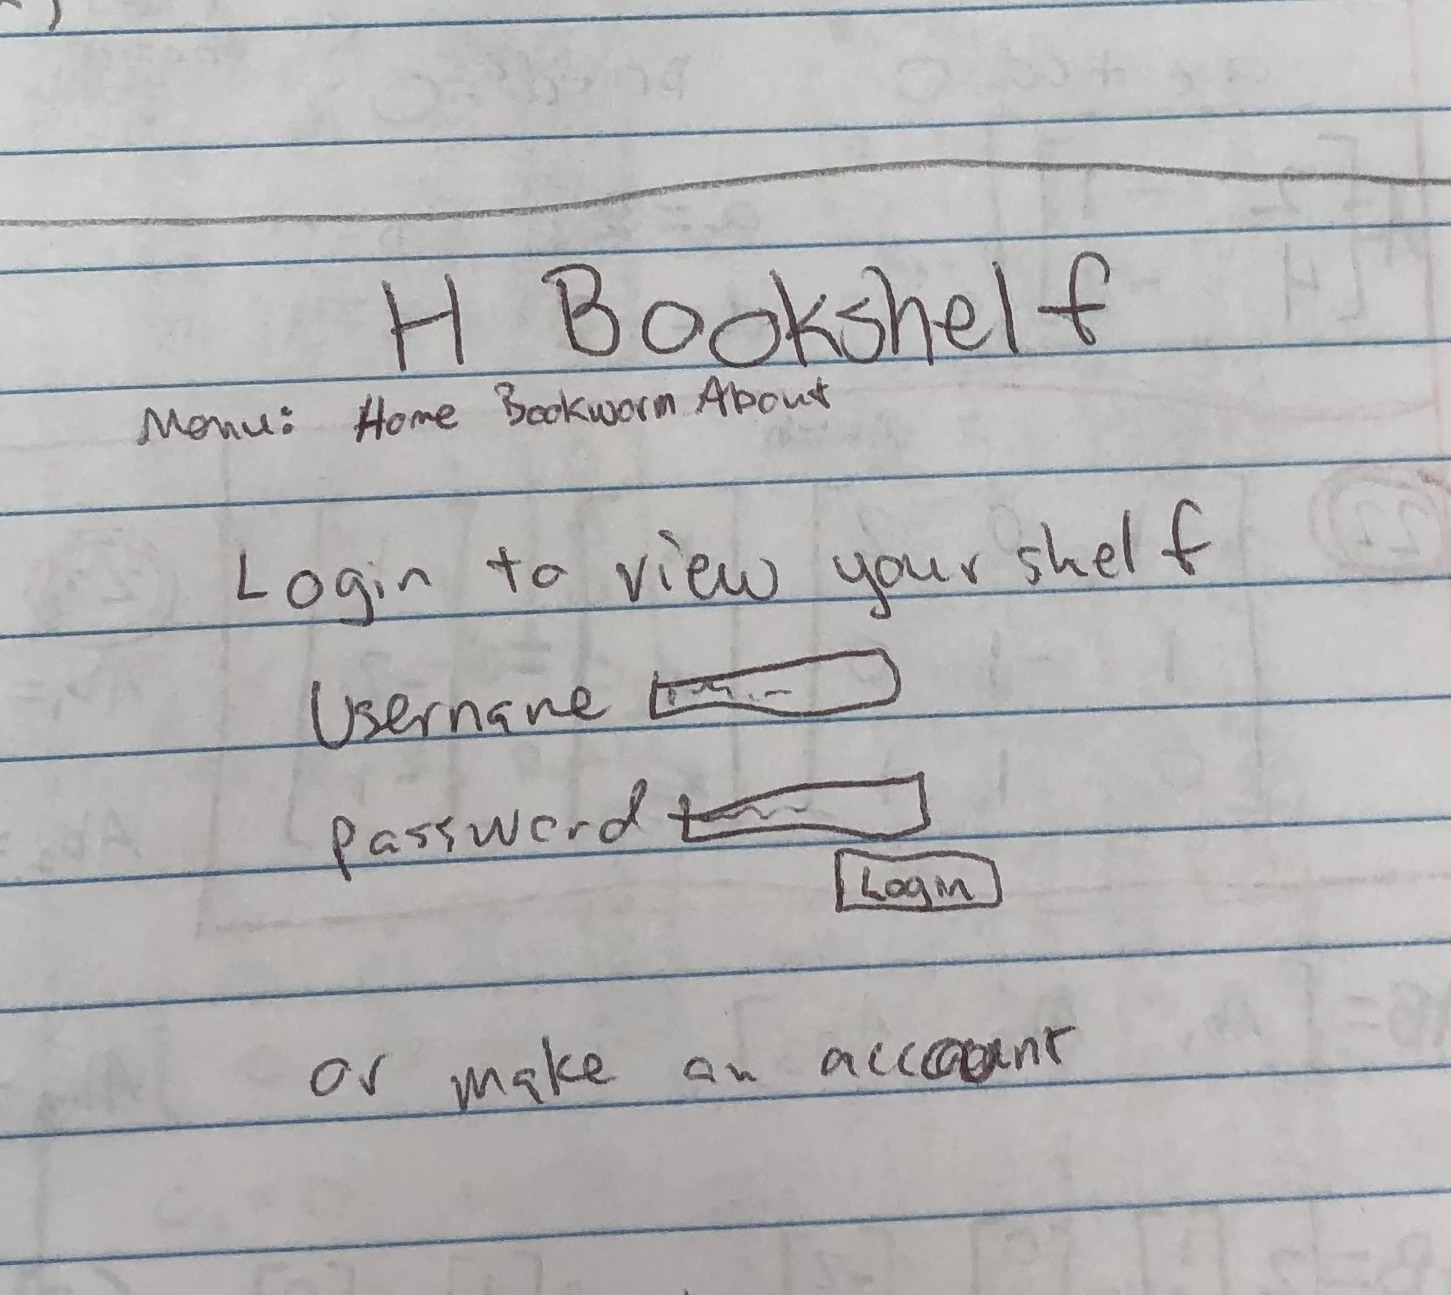 H Bookshelf
Menu: Home Bookworm About
Login to view your shelf
Username
password
Login
or make an account